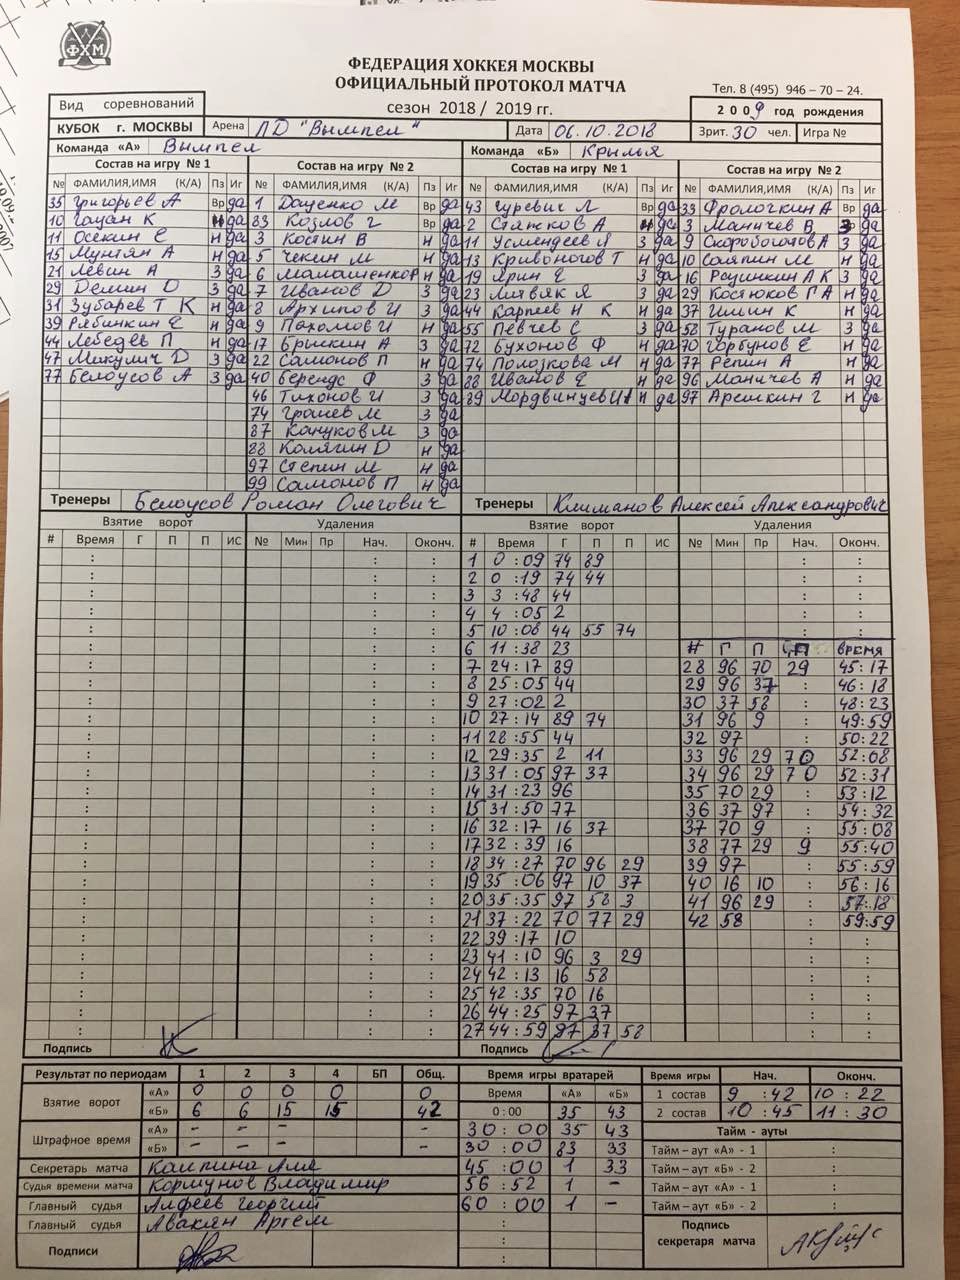 ФХМ
ФЕДЕРАЦИЯ ХОККЕЯ МОСКВЫ
ОФИЦИАЛЬНЫЙ ПРОТОКОЛ МАТЧА
Тел. 8 (495) 946 – 70 – 24.
Вид соревнований
сезон 2018 / 2019 гг.
2 0 0 9 год рождения
КУБОК г. МОСКВЫ Арена ЛД "Вымпел" Дата 06.10.2018 Зрит. 30 чел. Игра №
Команда «А» Вымпел Команда «Б» Крылья
Состав на игру № 1 Состав на игру № 2 Состав на игру № 1 Состав на игру № 2
№ ФАМИЛИЯ,ИМЯ (К/А) Пз Иг № ФАМИЛИЯ,ИМЯ (К/А) Пз Иг № ФАМИЛИЯ,ИМЯ (К/А) Пз Иг № ФАМИЛИЯ,ИМЯ (К/А) Пз Иг
35 Григорьев А Вр да 1 Даценко М Вр да 43 Гуревич Л Вр да 33 Фролочкин А Вр да
10 Гацан К н да 83 Козлов Г Вр да 2 Стажков А н да 3 Маничев В З да
11 Осекин Е н да 3 Костин В н да 11 Усмендеев Л З да 9 Скоробогатов А З да
15 Мунтян А н да 5 Чекин М н да 13 Кривоногов Т н да 10 Саяпин М н да
21 Левин А З да 6 Малашенков н да 19 Ярин Е З да 16 Рсушкин А К З да
29 Демин D З да 7 Иванов D З да 23 Литвяк Я З да 29 Костюков Г А н да
31 Зубарев Т К н да 8 Архипов И З да 44 Карпеев Н К н да 37 Илшин К н да
39 Рябинкин Е н да 9 Пахомов И н да 55 Певчев С З да 58 Туранов М З да
44 Лебедев П н да 17 Брикин А З да 72 Бухонов Ф н да 70 Горбунов Е н да
47 Микулич D З да 22 Самонов П н да 74 Полозкова М н да 77 Репин А н да
77 Белоусов А З да 40 Берендс Ф З да 88 Иванов Е н да 96 Маничев А н да
46 Тихонов И З да 89 Мордвинцев И н да 97 Арешкин Г н да
74 Грашев М З да
87 Кануков М З да
88 Калягин D н да
97 Степин М н да
99 Самонов П н да
Тренеры Белоусов Роман Олегович Тренеры Климанов Алексей Александрович
Взятие ворот Удаления Взятие ворот Удаления
# Время Г П П ИС № Мин Пр Нач. Оконч. # Время Г П П ИС № Мин Пр Нач. Оконч.
1 0 : 09 74 89
2 0 : 19 74 44
3 3 : 48 44
4 4 : 05 2
5 10 : 08 44 55 74
6 11 : 38 23 # Г П П время
7 24 : 17 89 28 96 70 29 45:17
8 25 : 05 44 29 96 37 46:18
9 27 : 02 2 30 37 58 48:23
10 27 : 14 89 74 31 96 9 49:59
11 28 : 55 44 32 97 50:22
12 29 : 35 2 11 33 96 29 70 52:08
13 31 : 05 97 37 34 96 29 70 52:31
14 31 : 23 96 35 70 29 53:12
15 31 : 50 77 36 37 97 54:32
16 32 : 17 16 37 37 70 9 55:08
17 32 : 39 16 38 77 29 9 55:40
18 34 : 27 70 96 29 39 97 55:59
19 35 : 06 97 10 37 40 16 10 56:16
20 35 : 35 97 58 3 41 96 29 57:18
21 37 : 22 70 77 29 42 58 59:59
22 39 : 17 10
23 41 : 10 96 3 29
24 42 : 13 16 58
25 42 : 35 70 16
26 44 : 25 97 37
27 44 : 59 97 37 58
Подпись Подпись
Результат по периодам 1 2 3 4 БП Общ. Время игры вратарей Время игры Нач. Оконч.
Взятие ворот «А» 0 0 0 0 0 Время «А» «Б» 1 состав 9 : 42 10 : 22
«Б» 6 6 15 15 42 0 : 00 35 43 2 состав 10 : 45 11 : 30
Штрафное время «А» - - - - 30 : 00 35 43 Тайм – ауты
«Б» - - - - 30 : 00 83 33 Тайм – аут «А» - 1 :
Секретарь матча Калпина Аля 45 : 00 1 33 Тайм – аут «Б» - 2 :
Судья времени матча Коршунов Владимир 56 : 52 1 – Тайм – аут «А» - 1 :
Главный судья Алфеев Георгий 60 : 00 1 – Тайм – аут «Б» - 2 :
Главный судья Авакян Артем
Подписи Подпись секретаря матча